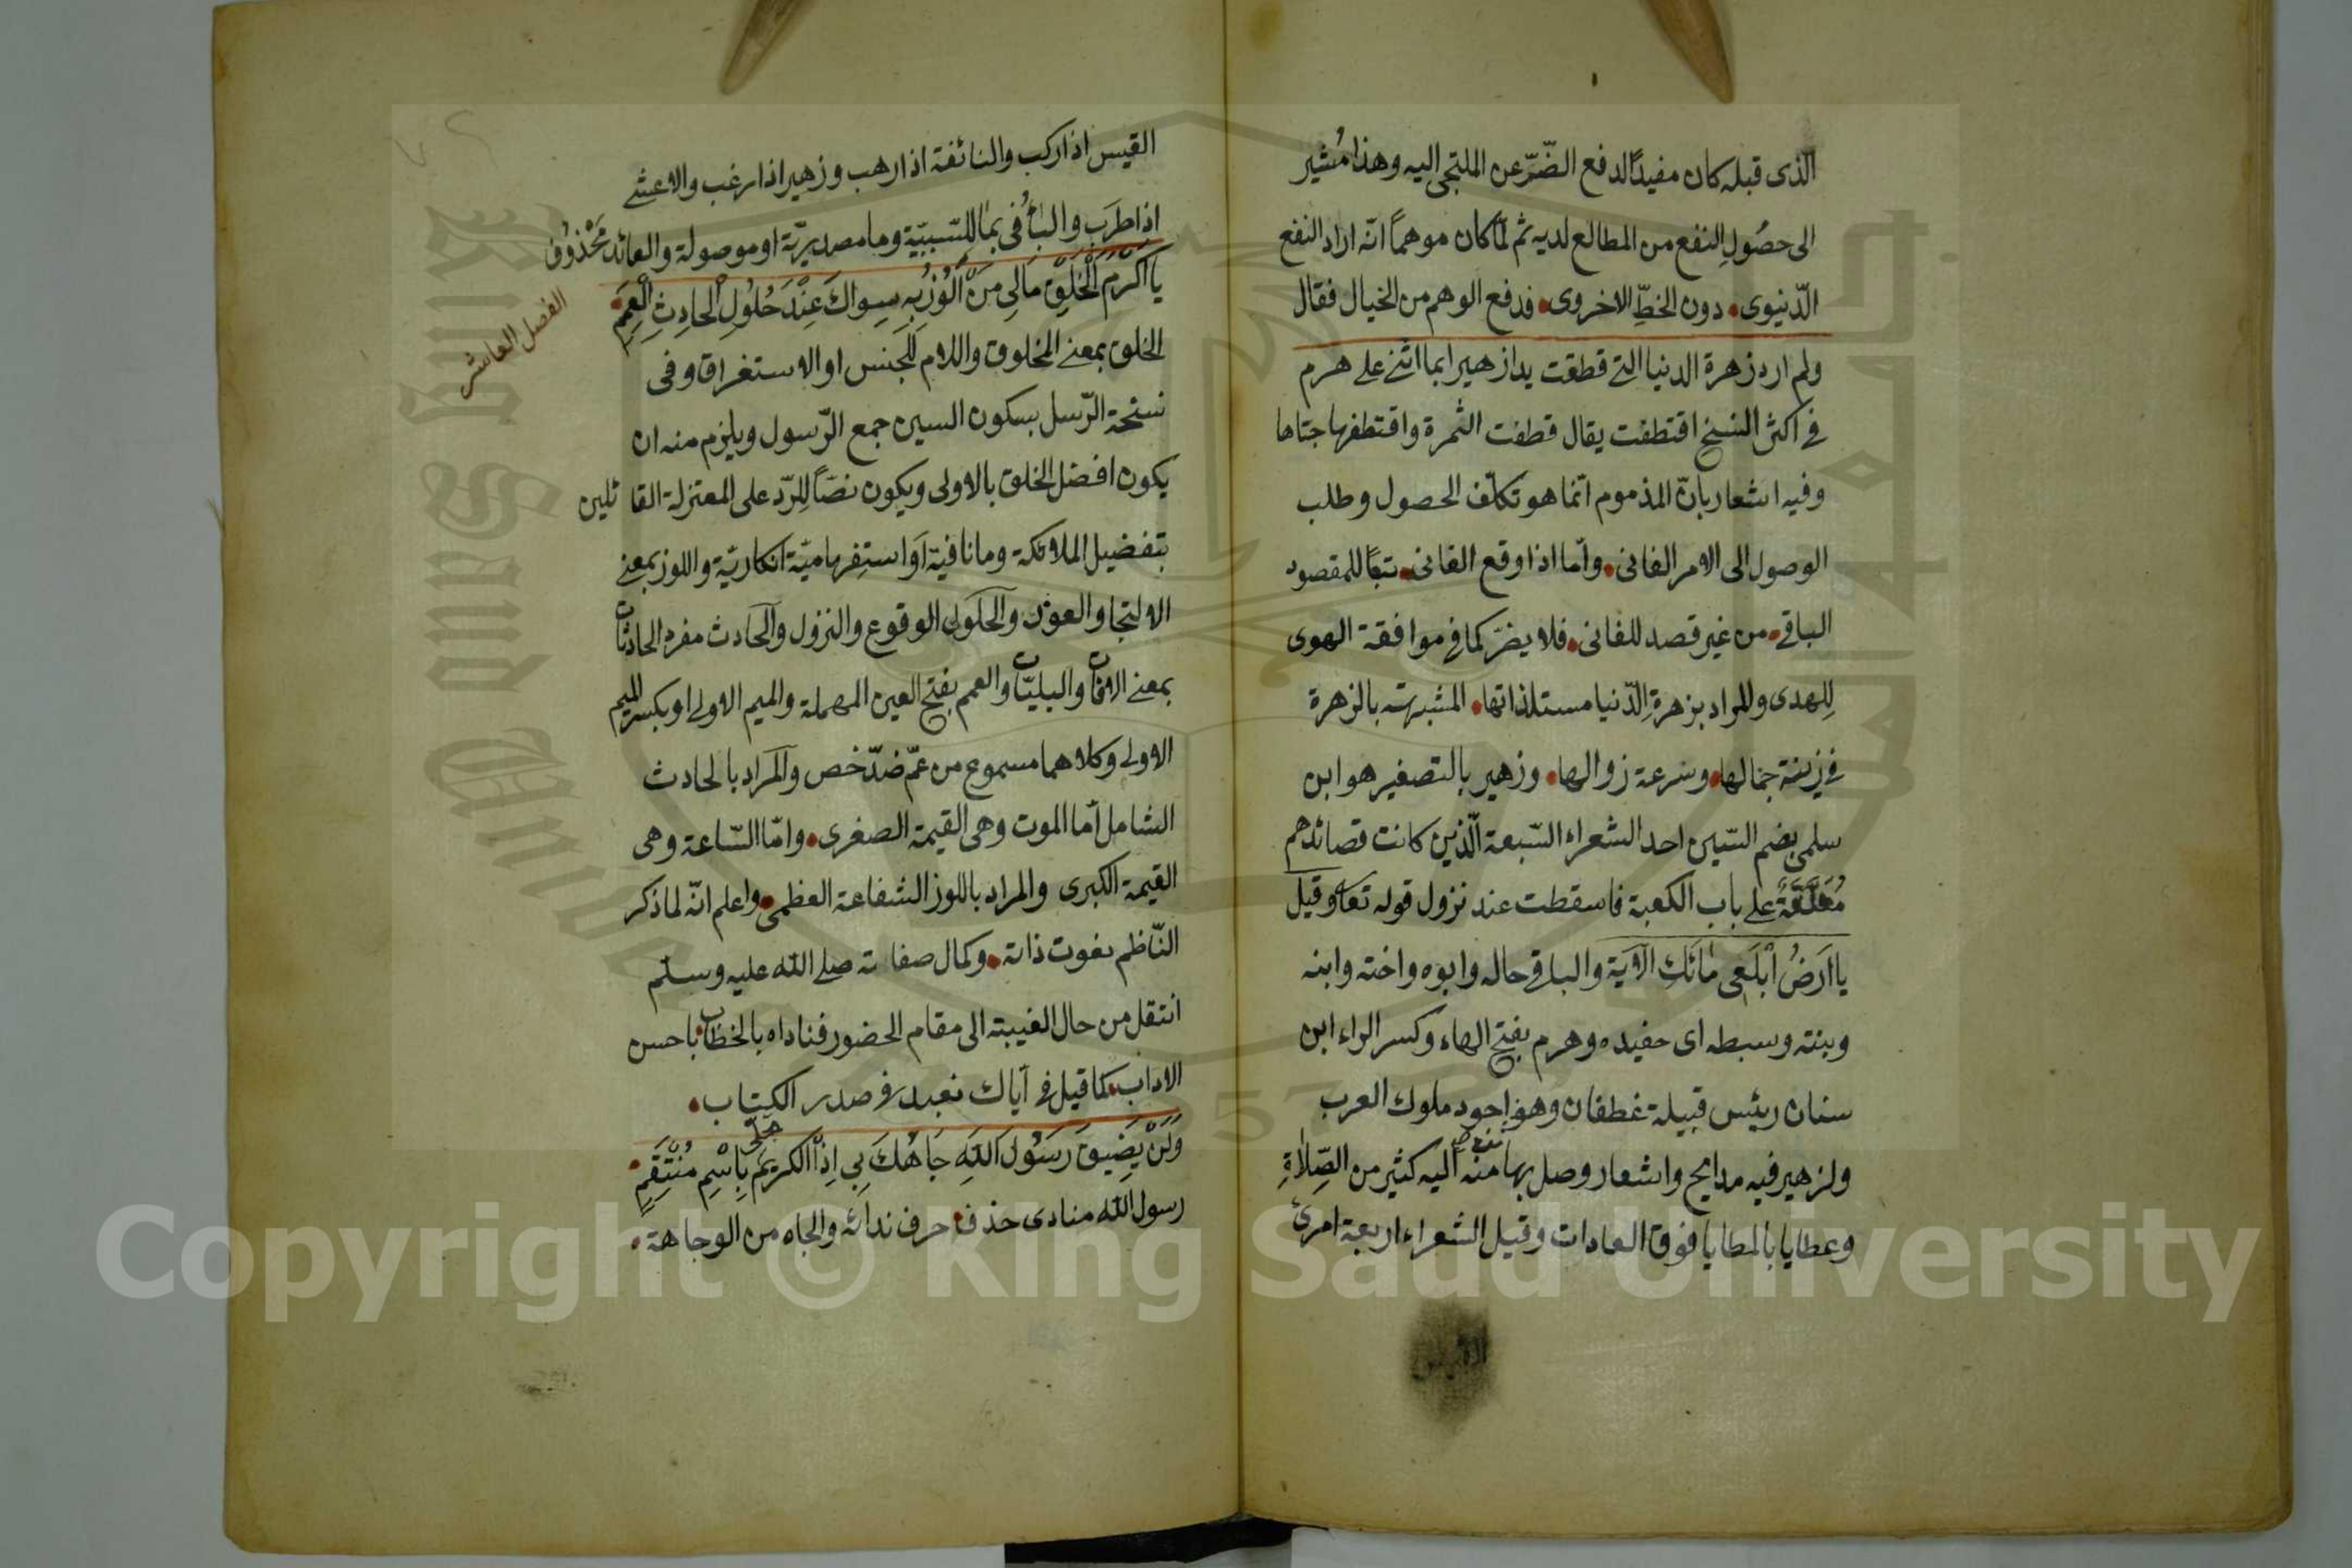 الذى قبله كان مفيدًا لدفع الضّرّ عن الملتجى اليه وهذا مُشير
الى حصُولِ النفع من المطالع لديه ثم لمّا كان موهمًا انّه اراد النفع
الدّنيوى. دون الخطِّ الاخروى. فدفع الوهم من الخيال فقال
ولم ارد زهرة الدنيا التى قطفت يدا زهير ابما اثنى على هرم
فى اكثر النسخ اقتطفت يقال قطفت الثمرة واقتطفها جتاها
وفيه اشعار بانّ المذموم انّما هو تكلّف الحصول وطلب
الوصول الى الامر الفانى. وامّا اذا وقع الفانى. تبعًا للمقصود
الباقى. من غير قصد للفانى. فلا يضرّ كما فى موافقة الهوى
لِلهدى والمراد بزهرةِ الدّنيا مستلذاتها. المشبهته بالزهرة
فى زينة جمالها. وسرعة زوالها. وزهير بالتصغير هو ابن
سلمى بضم السّين احد الشعراء السّبعة الّذين كانت قصائدهم
مُعَلَّقَةً على باب الكعبة فاسقطت عند نزول قوله تعا وقيل
يا ارَضُ ابْلَعِى مَائَكِ الآيَة والباقى حاله وابوه واخته وابنه
وبنته وسبطه اى حفيده وهرم بفتح الهاء وكسر الراء ابن
سنان رئيس قبيلة غطفان وهو اجود ملوك العرب
ولزهير فيه مدايح واشعار وصل بها منه اليه كثير من الصِّلَاةِ
وعطايا بالمطايا فوق العادات وقيل الشعراء اربعة امرئ
القيس اذا ركب والنائغة اذا رهب وزهير اذا رغب والاعشى
اذا طرَب والبأُ فى بما للِسّببيّة وما مصديريّة او موصولة والعائد مَحْذوُف
يَا اَكْرَمَ الْخَلْقِ مَالِى مَنْ اَلُوْذُ بِهِ سِوَاكَ عِنْدَ حُلُولِ الْحَادِثِ الْعَمَمِ
الفصل العاشر
الخلق بمعنى المخلوق واللام للجنس او الاستغراق وفى
نسخة الرّسل بسكون السين جمع الرّسول ويلزم منه ان
يكون افضل الخلق بالاولى ويكون نصّاً لِلرّد على المعتزلة القائلين
بتفضيل الملائكة وما نافية اَو استِفهاميّة انكاريّة واللوز بمعنى
الالتجا والعوْن والحلول الوقوع والنزول والحَادث مفرد الحادثات
بمعنى الافات والبليّات والعمم بفتح العين المهملة والميم الاولى او بكسر الميم
الاولى وكلاهما مسموع من عمّ ضدّ خص والمَراد بالحادث
الشامل أما الموت وهى القيمة الصغرى. وامّا السّاعة وهى
القيمة الكبرى والمراد باللوز الشفاعة العظمى. واعلم انّه لما ذكر
النّاظم نعوت ذاته. وكمال صفاته صلى الله عليه وسلم
انتقل من حال الغيبته الى مقام الحضور فناداه بالخطاب باحسن
الاداب. كما قيل فى اياك نعبد فى صدر الكتاب.
وَلَنْ يَضِيقَ رَسُولَ اللهِ جَاهُكَ بِى اِذَا الْكَرِيمُ تحلّى بِاسْمِ مُنْتَقِمٍ.
رسول الله منادى حذف حرف ندائه والجاه من الوجاهة.
Copyright © King Saud University